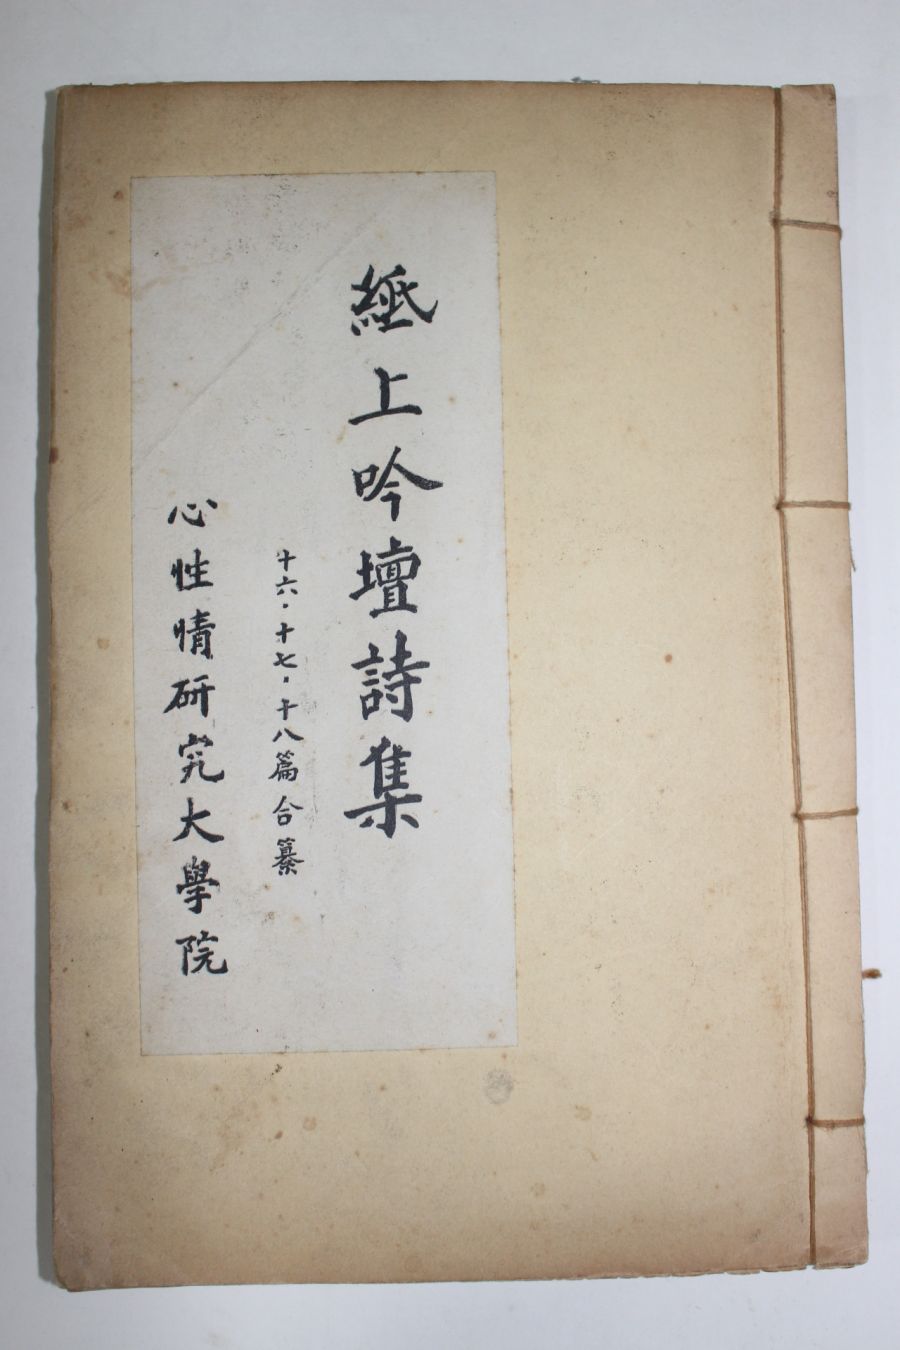 紙上吟壇詩集
十六·十七·十八篇合纂
心性情硏究大學院